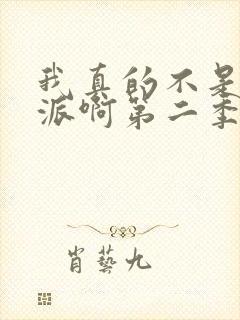 我真的不是
派啊第二季
肖藝九